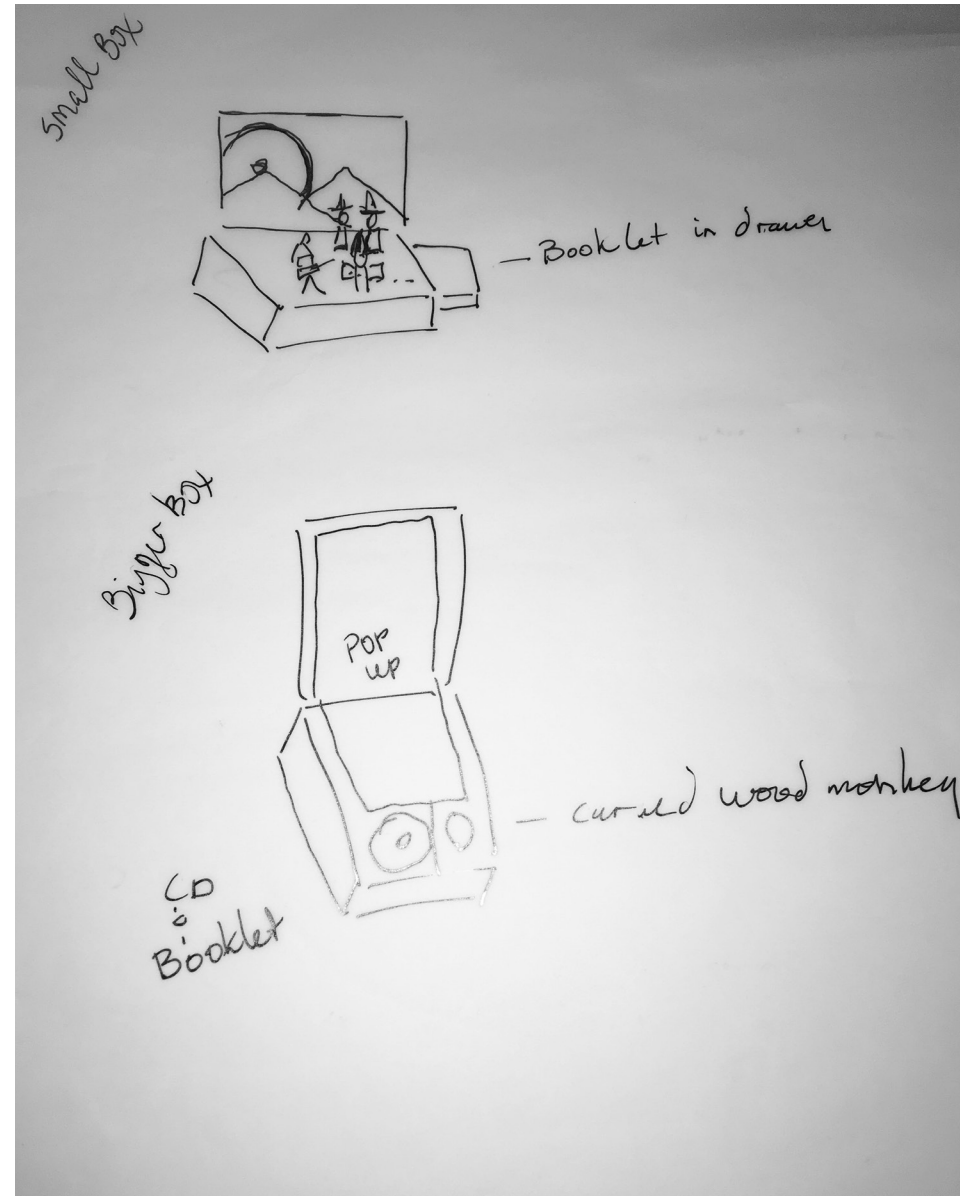 Small Box
Booklet in drawer
Bigger Box
POP
UP
carved wood monkey
CD
&
Booklet